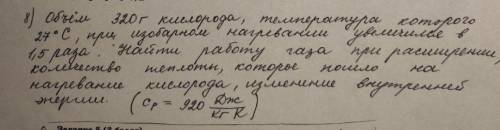 8) Объём 320 г кислорода, температура которого
27°С, при изобарном нагревании увеличился в
1,5 раза. Найти работу газа при расширении,
количество теплоты, которое пошло на
нагревание кислорода, изменение внутренней
энергии. (Cp = 920 Дж/кг К)